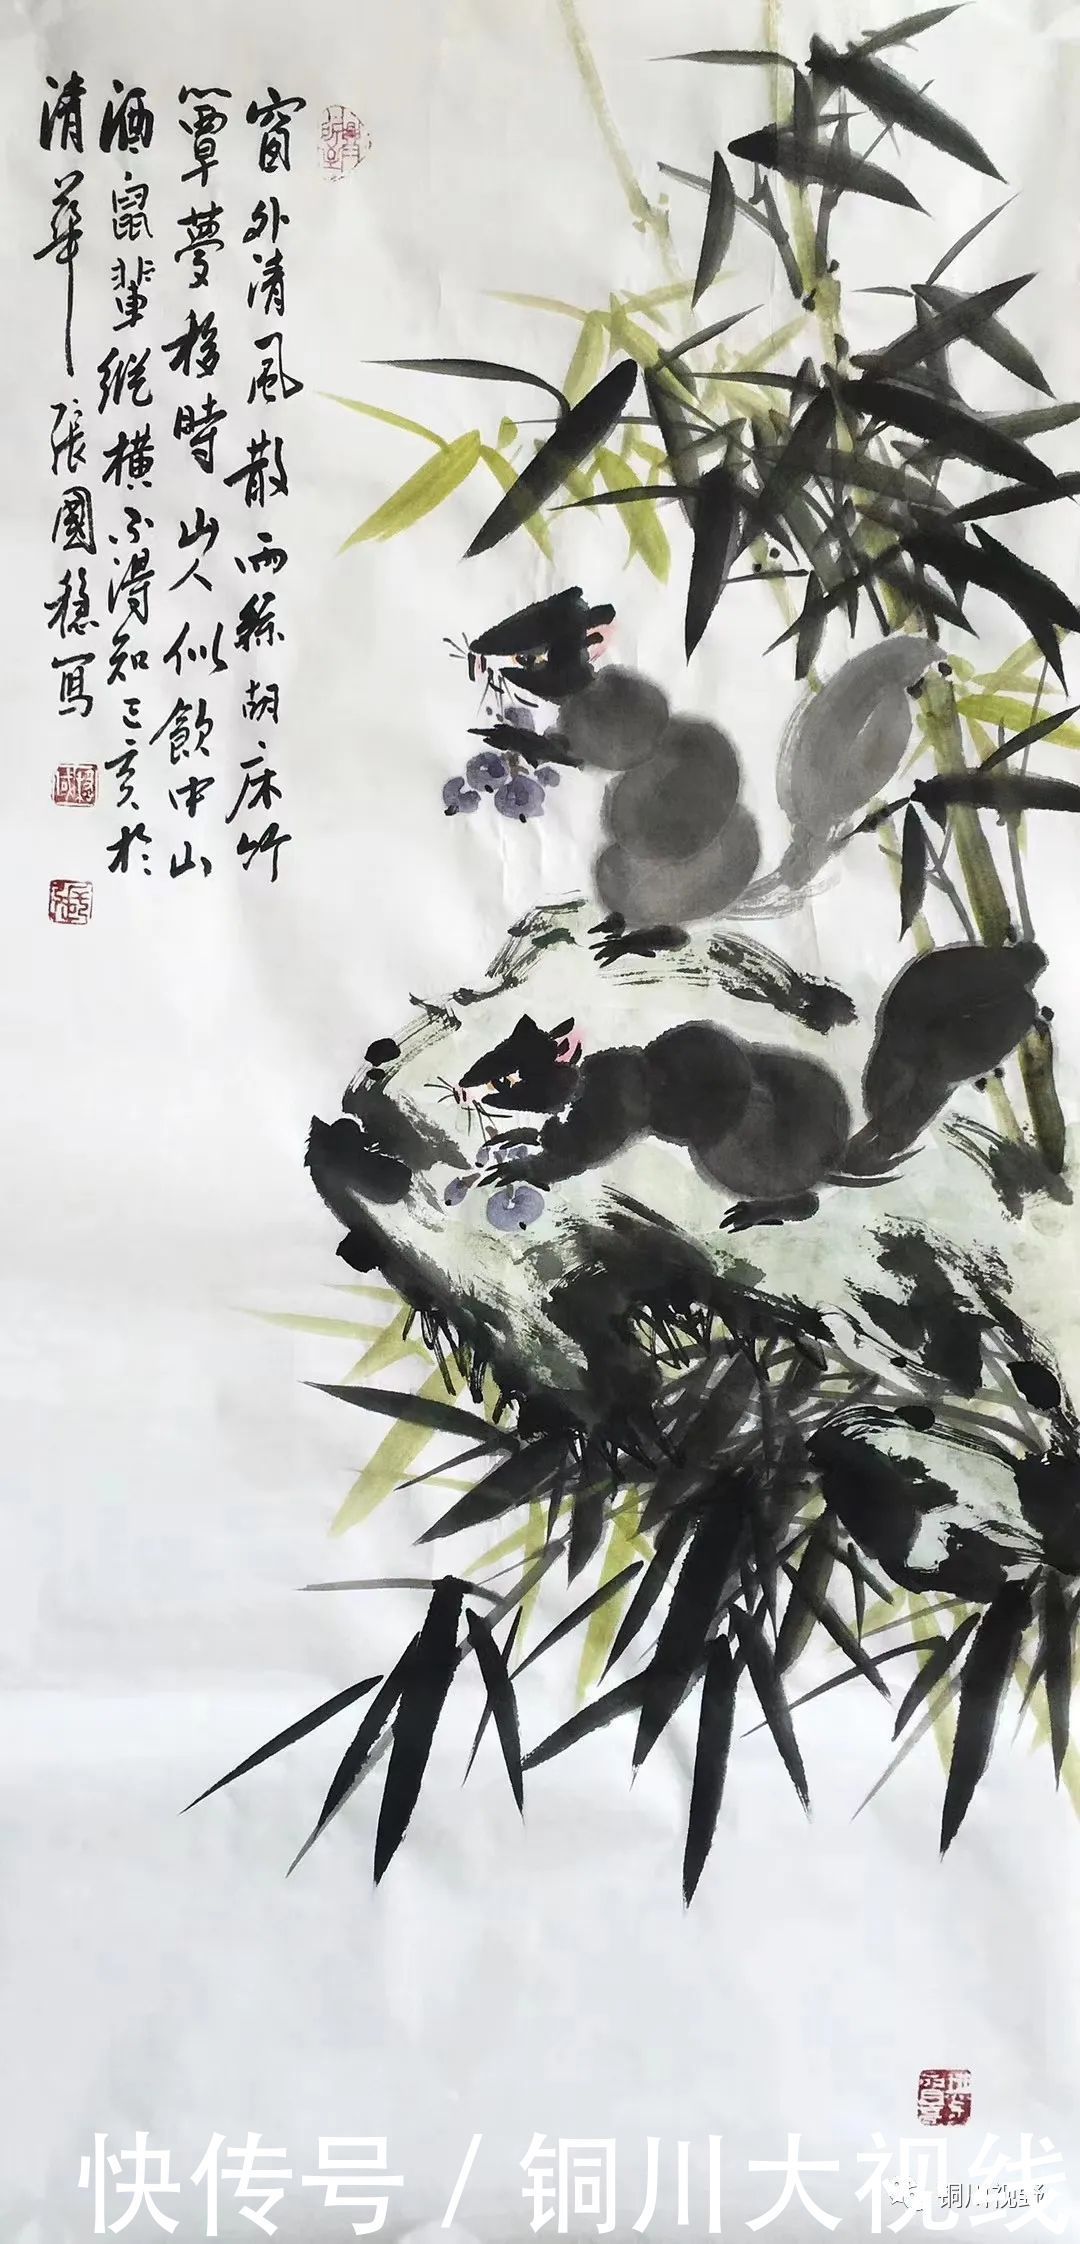 窗外清風散雨絲胡床竹
簟夢移時山人似飲中山
酒鼠輩縱橫不得知己亥於
清華 張國穩寫
快传号 / 铜川大视线
铜川视野